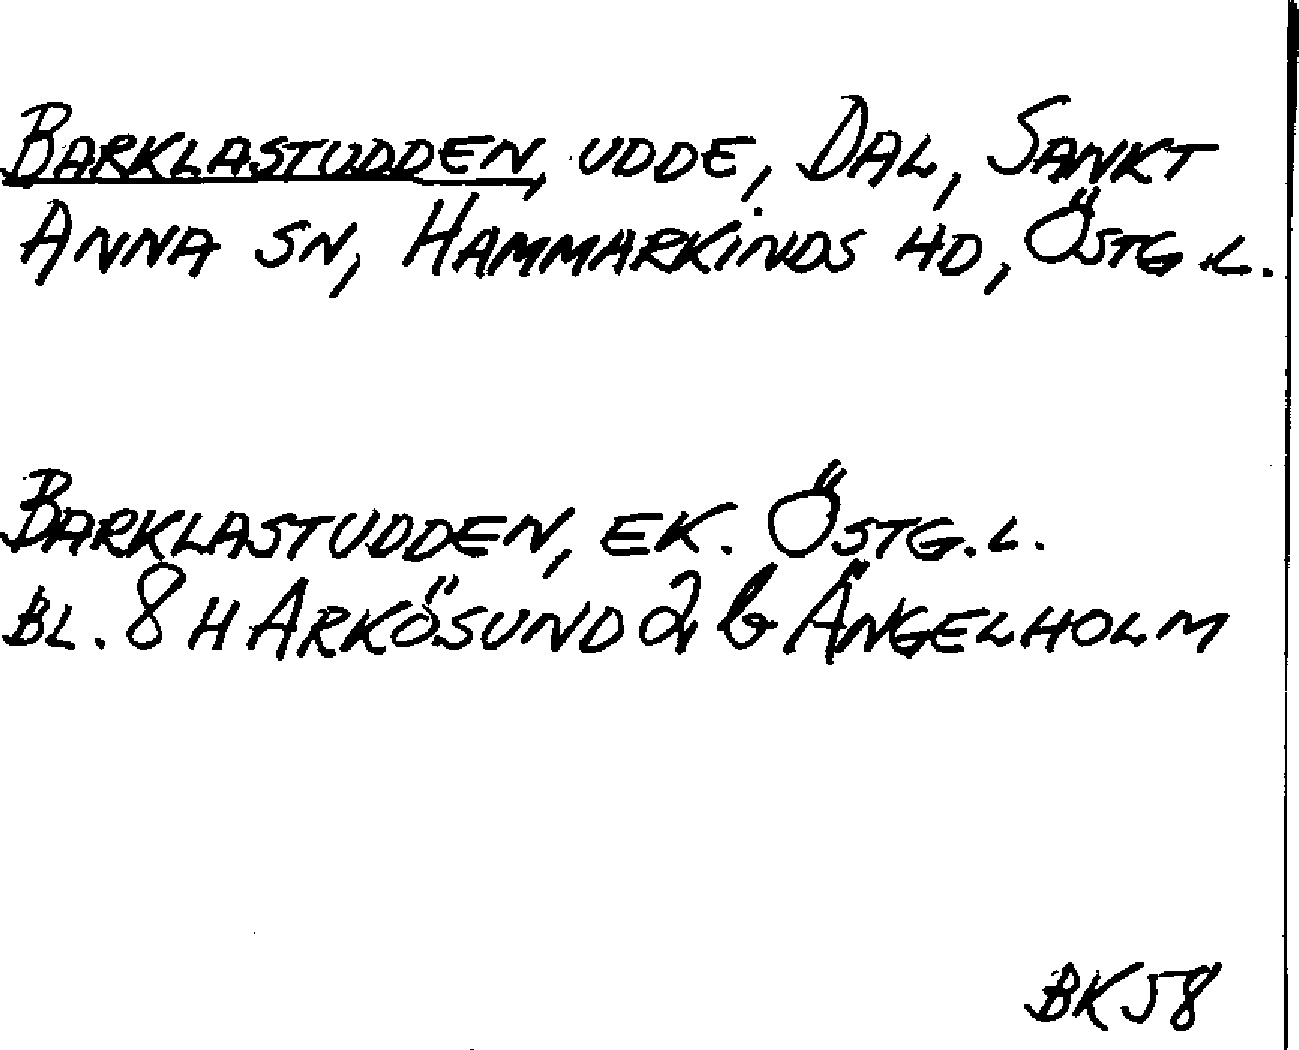 BARKLASTUDDEN, UDDE, DAL, SANKT
ANNA SN, HAMMARKINDS HD, ÖSTG.L.
BARKLASTUDDEN, EK. ÖSTG.L.
BL. 8 H ARKÖSUND 2 b ÄNGELHOLM
BK 58